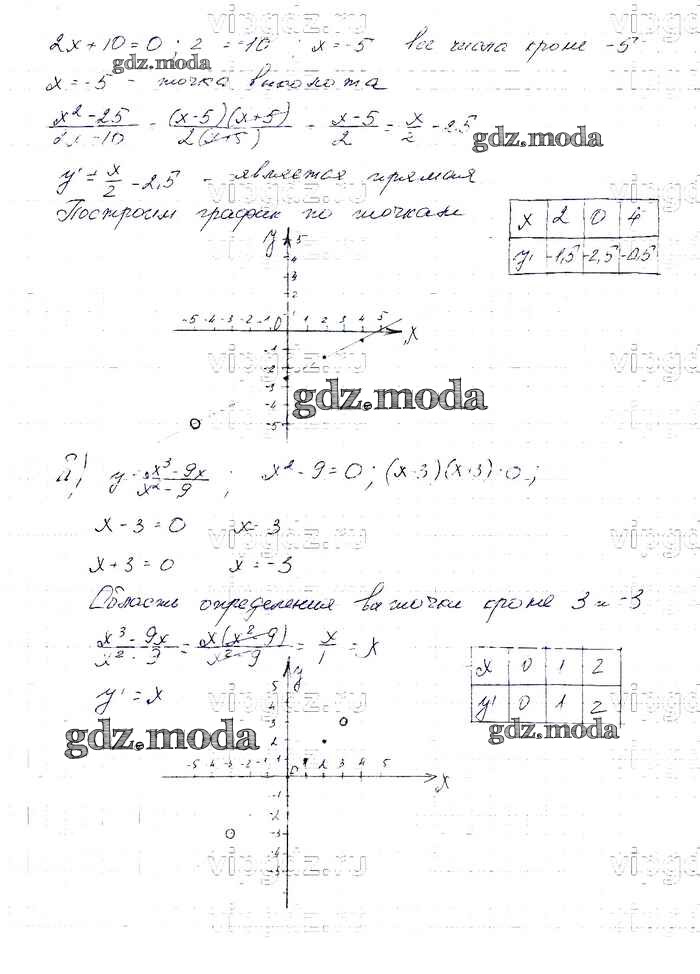 2x + 10 = 0 ; 2 = -10 ; x = -5 все числа кроме -5
x = -5 - точка выколота
x² - 25 / 2x - 10 = (x-5)(x+5) / 2(x+5) = x-5 / 2 = x/2 - 2,5
y' = x/2 - 2,5 - является прямая
Построим график по точкам
x 2 0 4
y' -1,5 -2,5 -0,5
y 5
4
3
2
-5 -4 -3 -2 -1 0 1 2 3 4 5 x
-1
-2
-3
-4
-5
y = x³ - 9x / x² - 9 ; x² - 9 = 0 ; (x-3)(x+3) = 0 ;
x - 3 = 0 x = 3
x + 3 = 0 x = -3
Область определения все точки кроме 3 и -3
x³ - 9x / x² - 9 = x(x² - 9) / x² - 9 = x/1 = x
y' = x
x 0 1 2
y' 0 1 2
y
5
4
3
2
1
-5 -4 -3 -2 -1 0 1 2 3 4 5 x
-1
-2
-3
-4
-5
gdz.moda
gdz.moda
gdz.moda
gdz.moda
gdz.moda
vipgdz.ru